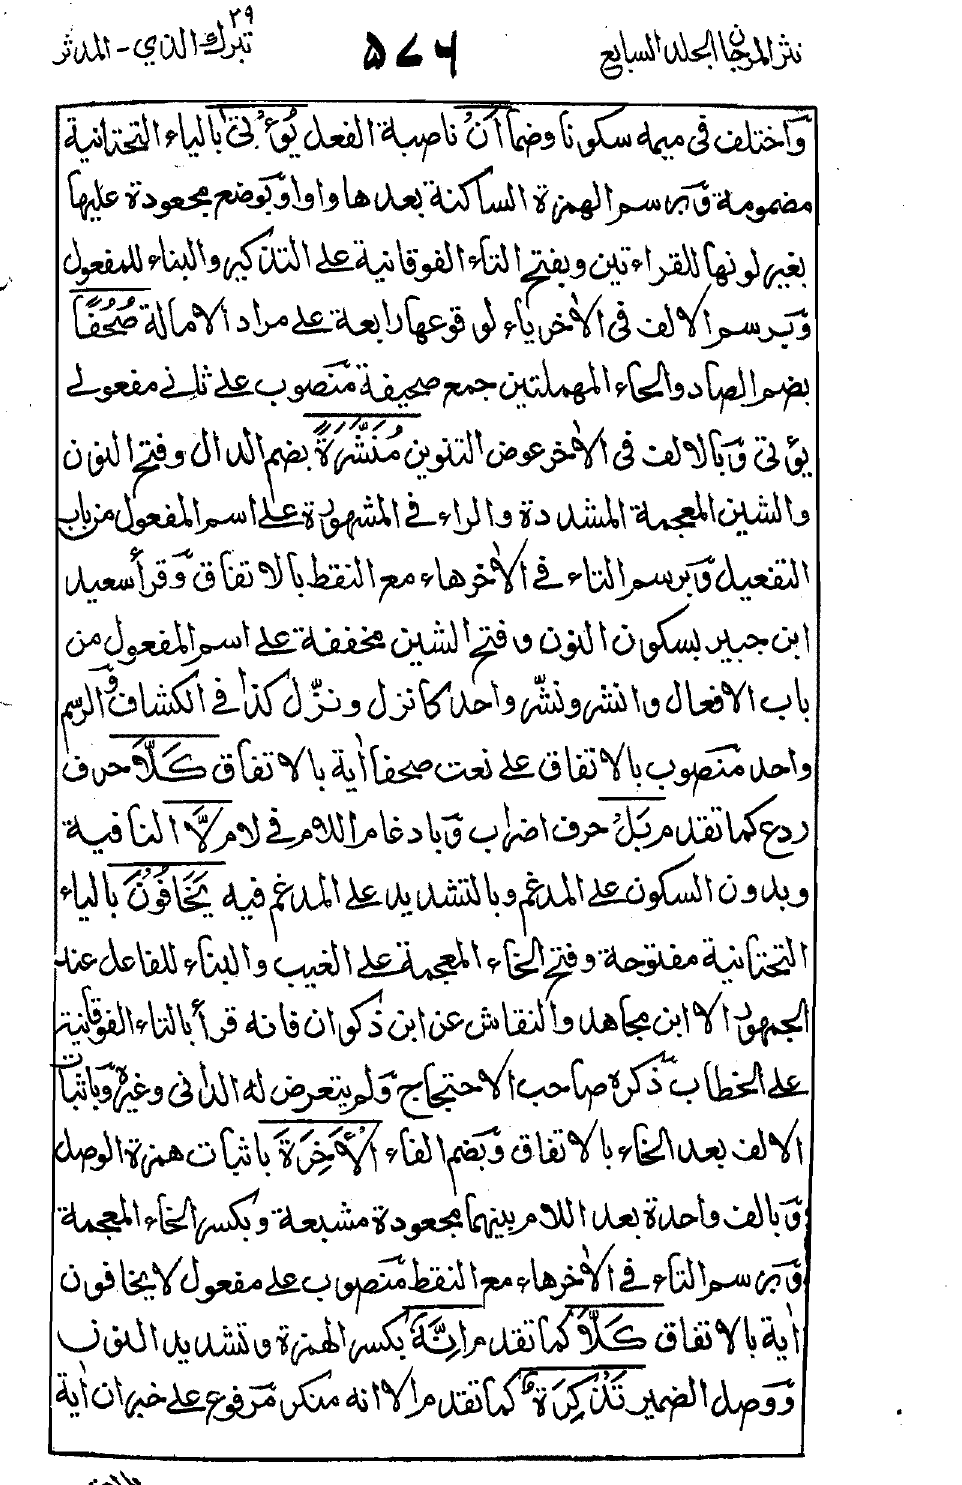 نثر المرجان الجلد السابع
٥٧٦
تبرك الذي - المدثر
٢٩
وَاختلف فى ميمه سكونا وضما أَنْ ناصبة الفعل يُؤْتىٰ بالياء التحتانية
مضمومة وَبرسم الهمزة الساكنة بعدها واوا وَبوضع مجعودة عليها
بغير لونها للقراءتين وبفتح التاء الفوقانية على التذكير والبناء للمفعول
وَبرسم الالف فى الاٰخر ياء لوقوعها رابعة على مراد الامالة صُحُفًا
بضم الصاد والحاء المهملتين جمع صحيفة منَصوب على ثانى مفعولى
يؤتى وَبالالف فى الاٰخر عوض التنوين مُنَشَّرَةً بضم الدال وفتح النون
والشين المعجمة المشددة والراء فى المشهورة على اسم المفعول من باب
التفعيل وَبرسم التاء فى الاٰخر هاء مع النقط بالاتفاق وَقرأ سعيد
ابن جبير بسكون النون وفتح الشين مخففة على اسم المفعول من
باب الافعال وانشر ونشّر واحد كانزل ونزّل كذا فى الكشاف وَالرسم
واحد منَصوب بالاتفاق على نعت صحفا اٰية بالاتفاق كَلَّا حرف
ردع كما تقدم بَلْ حرف اضراب وَبادغام اللام فى لام لَّا النافية
وبدون السكون على المدغم وبالتشديد على المدغم فيه يَخَافُوْنَ بالياء
التحتانية مفتوحة وفتح الخاء المعجمة على الغيب والبناء للفاعل عند
الجمهور الا ابن مجاهد والنقاش عن ابن ذكوان فانه قرأ بالتاء الفوقانية
على الخطاب ذَكره صاحب الاحتجاج وَلم يتعرض له الدانى وغيره وَباثبات
الالف بعد الخاء بالاتفاق وَبضم الفاء الْاٰخِرَةَ باثبات همزة الوصل
وَبالف واحدة بعد اللام بينهما مجعودة مشبعة وبكسر الخاء المعجمة
وَبرسم التاء فى الاٰخر هاء مع النقط منَصوب على مفعول لا يخافون
اٰية بالاتفاق كَلَّا كما تقدم اِنَّهٗ بكسر الهمزة وتشديد النون
وَوصل الضمير تَذْكِرَةٌ كما تقدم الا انه منكر مَرفوع على خبر ان اٰية